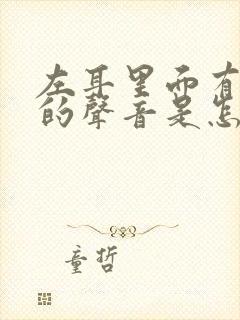 左耳里面有
的聲音是怎
童哲